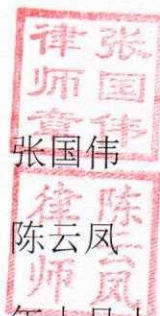 张国伟
律师章
张国伟
陈云凤
律师
陈云凤